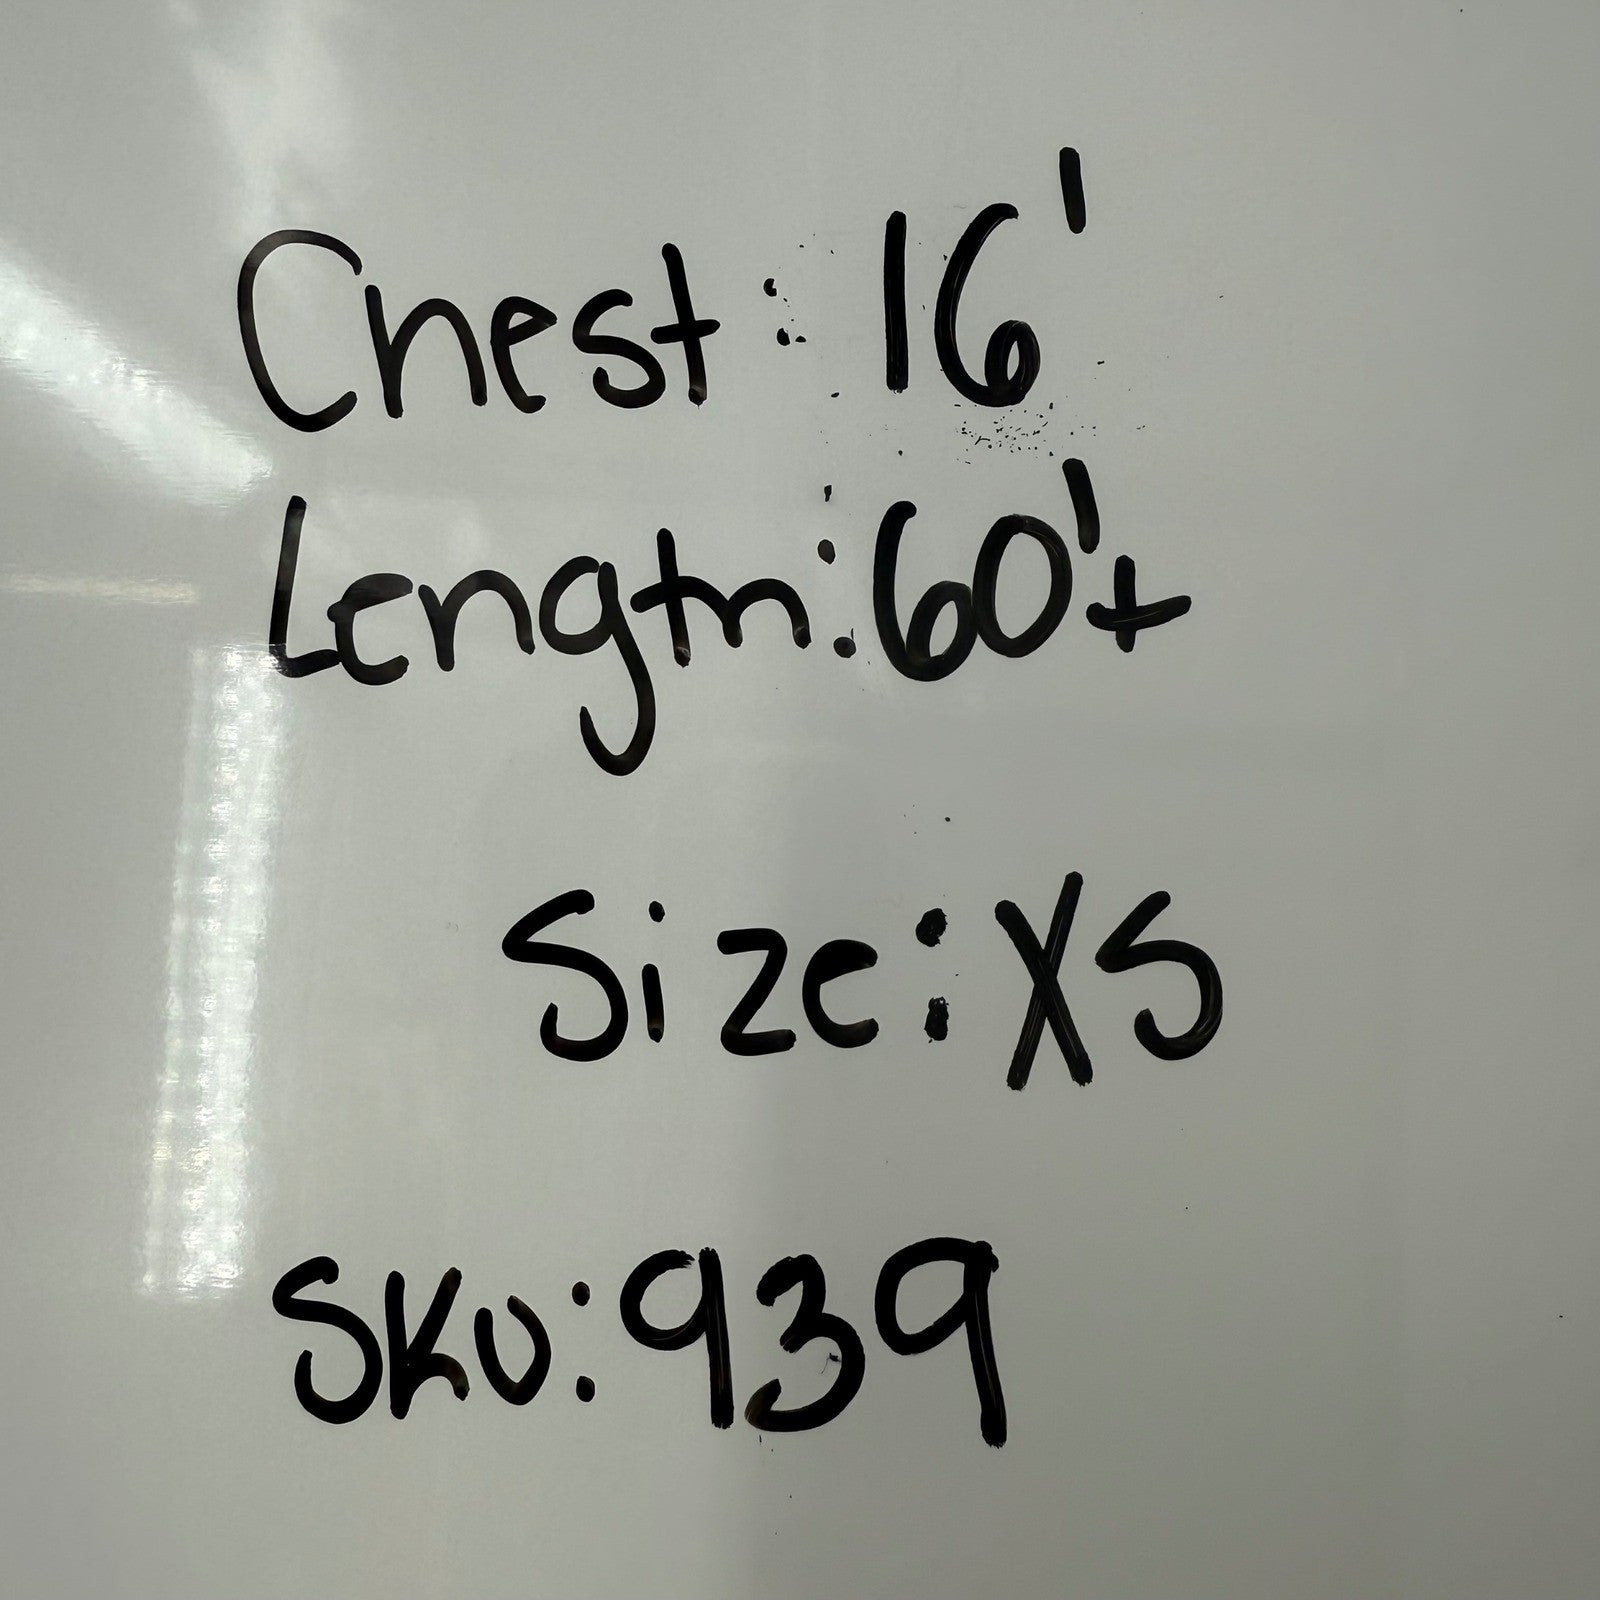 Chest: 16'
Length: 60'+
Size: XS
SKU: 939